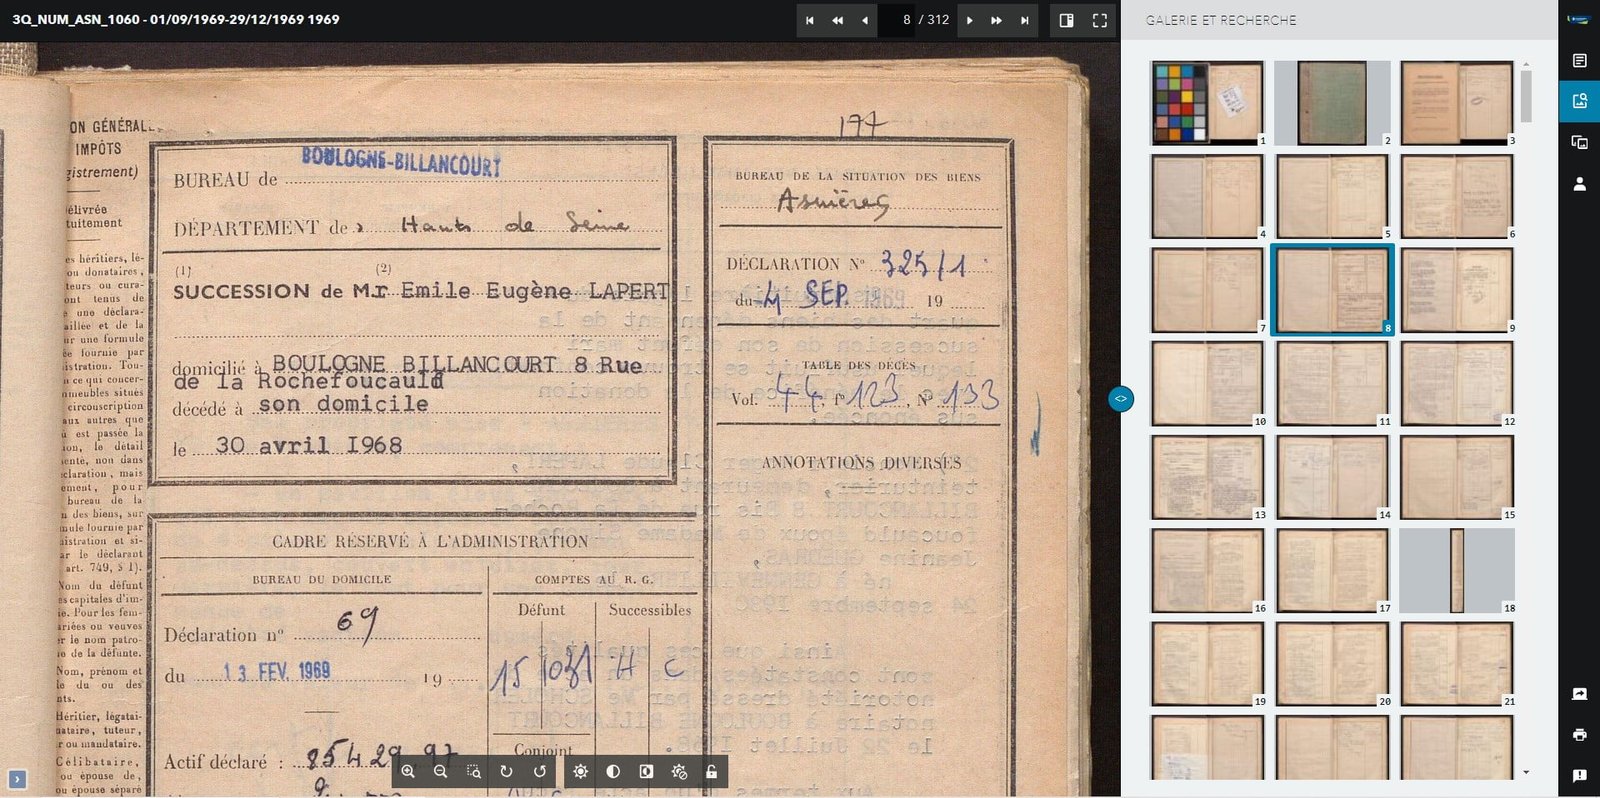 3Q_NUM_ASN_1060 - 01/09/1969-29/12/1969 1969
8 / 312
GALERIE ET RECHERCHE
ON GÉNÉRAL
IMPÔTS
gistrement)
élivrée
tuitement
es héritiers, lé-
ou donataires,
teurs ou cura-
ont tenus de
e une déclara-
aillée et de la
ur une formule
ée fournie par
istration. Tou-
n ce qui concer-
immeubles situés
circonscription
aux autres que
ù est passée la
ion, le détail
enté, non dans
claration, mais
ement, pour
bureau de la
n des biens, sur
mule fournie par
nistration et si-
ar le déclarant
art. 749, § 1).
Nom du défunt
es capitales d'im-
ie. Pour les fem-
ariées ou veuves
er le nom patro-
e de la défunte.
Nom, prénom et
le du ou des
nts.
Héritier, légatai-
nataire, tuteur,
r ou mandataire.
Célibataire,
ou épouse de,
ou épouse séparé
BUREAU de BOULOGNE-BILLANCOURT
DÉPARTEMENT de Hauts de Seine
(1) (2)
SUCCESSION de Mr Emile Eugène LAPERT
domicilié à BOULOGNE BILLANCOURT 8 Rue
de la Rochefoucauld
décédé à son domicile
le 30 avril I968
CADRE RÉSERVÉ À L'ADMINISTRATION
BUREAU DU DOMICILE
Déclaration n° 69
du 13 FEV. 1969 19
Actif déclaré : 85429,97
COMPTES AU R. G.
Défunt Successibles
15 1031 H C
Conjoint
177
BUREAU DE LA SITUATION DES BIENS
Asnières
DÉCLARATION N° 325/1
du 4 SEP. 1969 19
TABLE DES DÉCÈS
Vol. 44, f° 123, N° 133
ANNOTATIONS DIVERSES
1
2
3
4
5
6
7
8
9
10
11
12
13
14
15
16
17
18
19
20
21